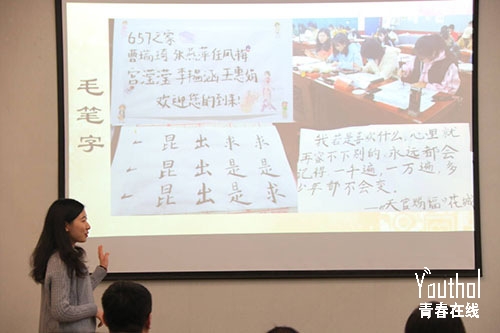 毛笔字
657之家
曹瑞琦 张燕萍 任凤梅
宫滢滢 李楹涵 王惠娟
欢迎您的到来!
一 昆 出 求 求
一 昆 出 是 是
一 昆 出 是 求
我若是喜欢什么,心里就
再容不下别的,永远都会
记得,一千遍,一万遍,多
少年都不会变.
——天官赐福·花城
Youthol
青春在线